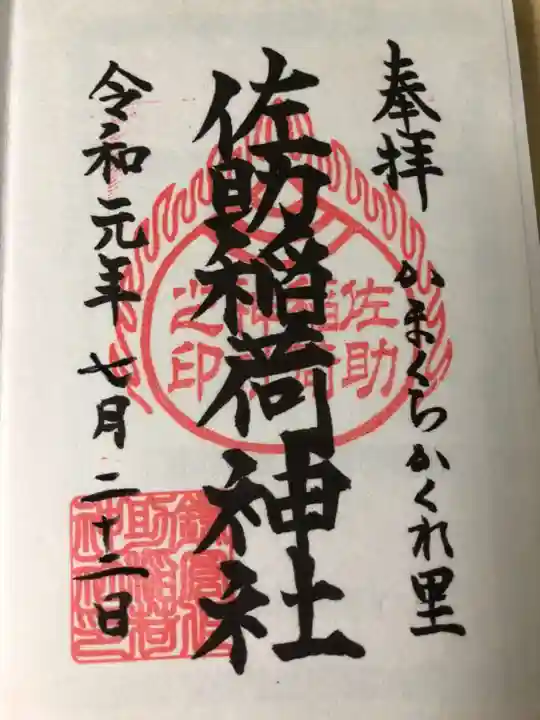 奉拝
かまくらかくれ里
佐助稲荷神社
令和元年七月二十二日
佐助
稲荷
神社
之印